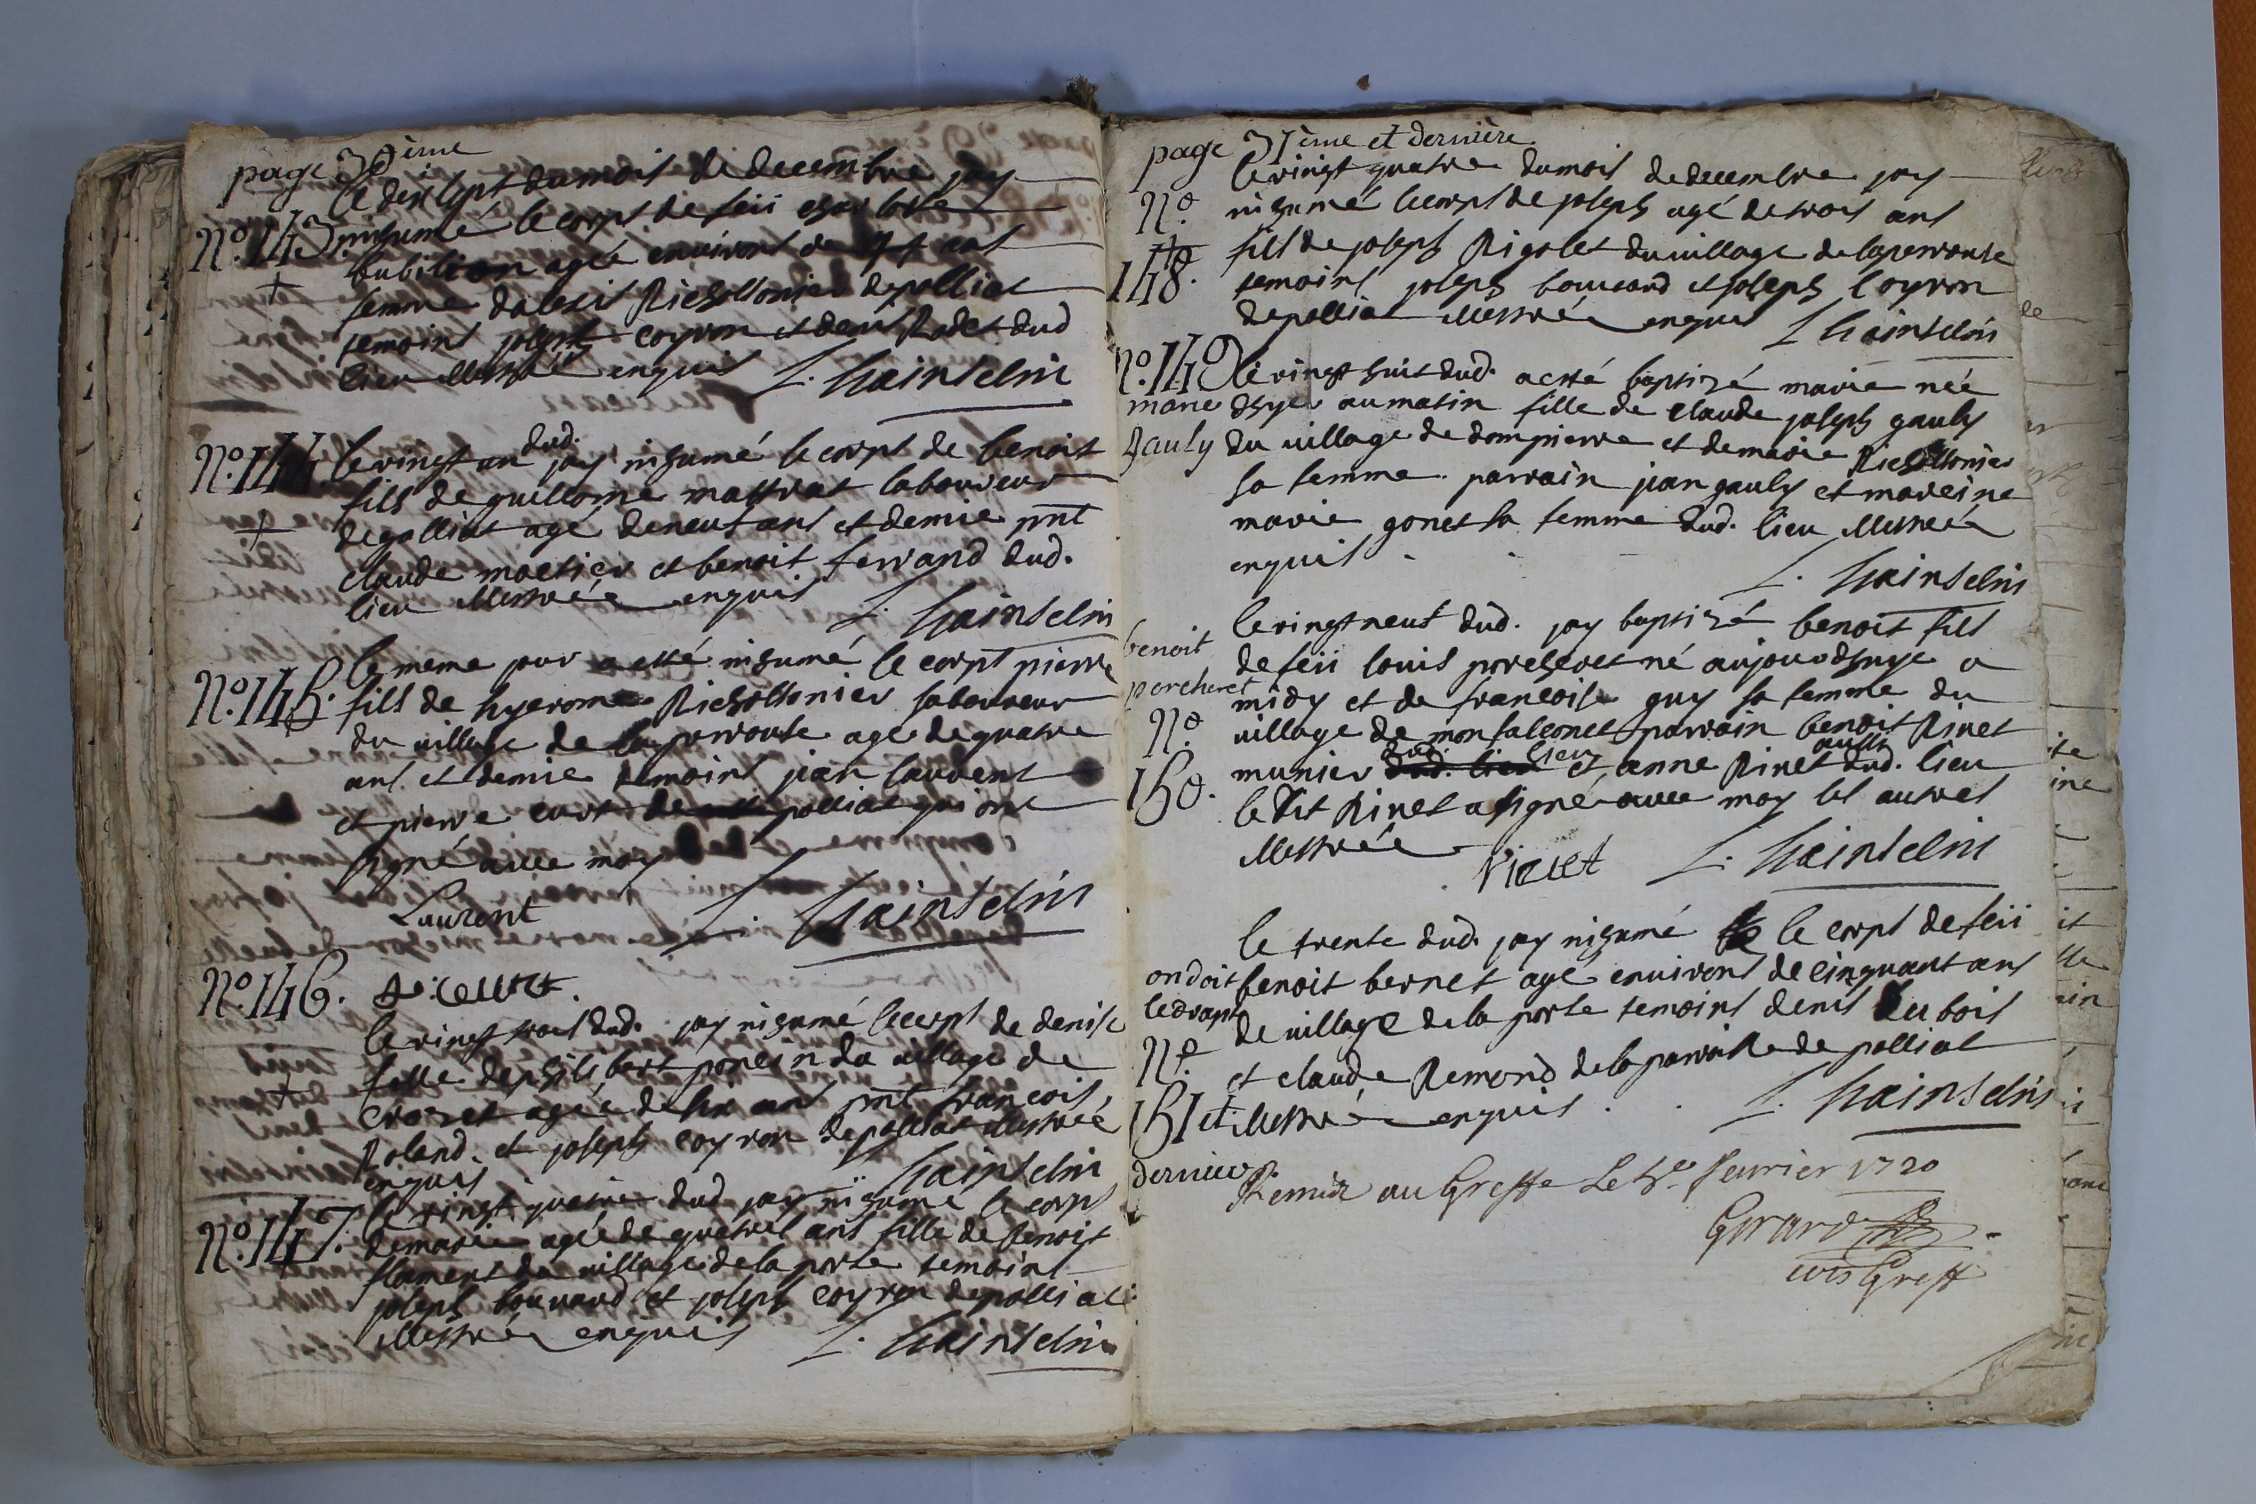 page 30ème
le dix sept du mois de decembre jay
No. 143. inhumé le corps de feü charlotte
bubillion agée environs de ans
+
femme dalexis Richollonier de polliat
temoins joseph coyron et denis Radet dud
lieu illettrée enquis L. hainselin
No. 144. le vingt un dud. jay inhumé le corps de benoist
fils de guillome mattrat laboureur
+
de polliat agé de neuf ans et demie pnt
claude moetier et benoit ferrand dud.
lieu illettrée enquis L. hainselin
No. 145. le meme jour a esté inhumé le corps pierre
fils de hyerome Richollonier laboureur
du village de la perrouse agé de quatre
ans et demie temoins jean laurent
et pierre curt de polliat qui ont
signé avec moy
Laurent L. hainselin
No. 146.
le vingt trois dud. jay inhumé le corps de denise
fille de philibert poncin du village de
+
crozet agée de six ans pnt francois
Roland et joseph coyron de polliat illettrée
enquis hainselin
No. 147. le vingt quatre dud jay inhumé le corps
de marie agée de quatre ans fille de benoist
flament du village de la porte temoins
joseph bouvard et joseph coyron de polliat
illettrée enquis L. hainselin
page 31ème et dernière
le vingt quatre du mois de decembre jay
No. inhumé le corps de joseph agé de trois ans
148. fils de joseph Rigolet du village de la perrouse
temoins joseph bouvard et joseph coyron
de polliat illettrée enquis L hainselin
No. 149 le vingt huit dud. a esté baptizé marie née
marie dhyer au matin fille de claude joseph gauly
gauly du village de dompierre et de marie Richollonier
sa femme. parrain jean gauly et mareine
marie gonet sa femme dud. lieu illettrée
enquis
L. hainselin
le vingt neuf dud. jay baptizé benoist fils
benoit de feü louis porcheret né aujourdhuye a
porcheret midy et de francoise guy sa femme du
No. village de monfalconet parrain benoit Rivet
150. munier dud. lieu et anne Rivet aussy dud. lieu
ledit Rivet a signé avec moy les autres
illettrée
Rivet L. hainselin
le trente dud. jay inhumé le corps de feü
ondoit benoit bernet agé environs de cinquant ans
ledrapt de village de la porte temoins denis du bois
No. et claude Remond de la parroisse de polliat
151 et illettré enquis. L. hainselin
dernier.
Remis au Greffe Le 5e feurier 1720
Girard